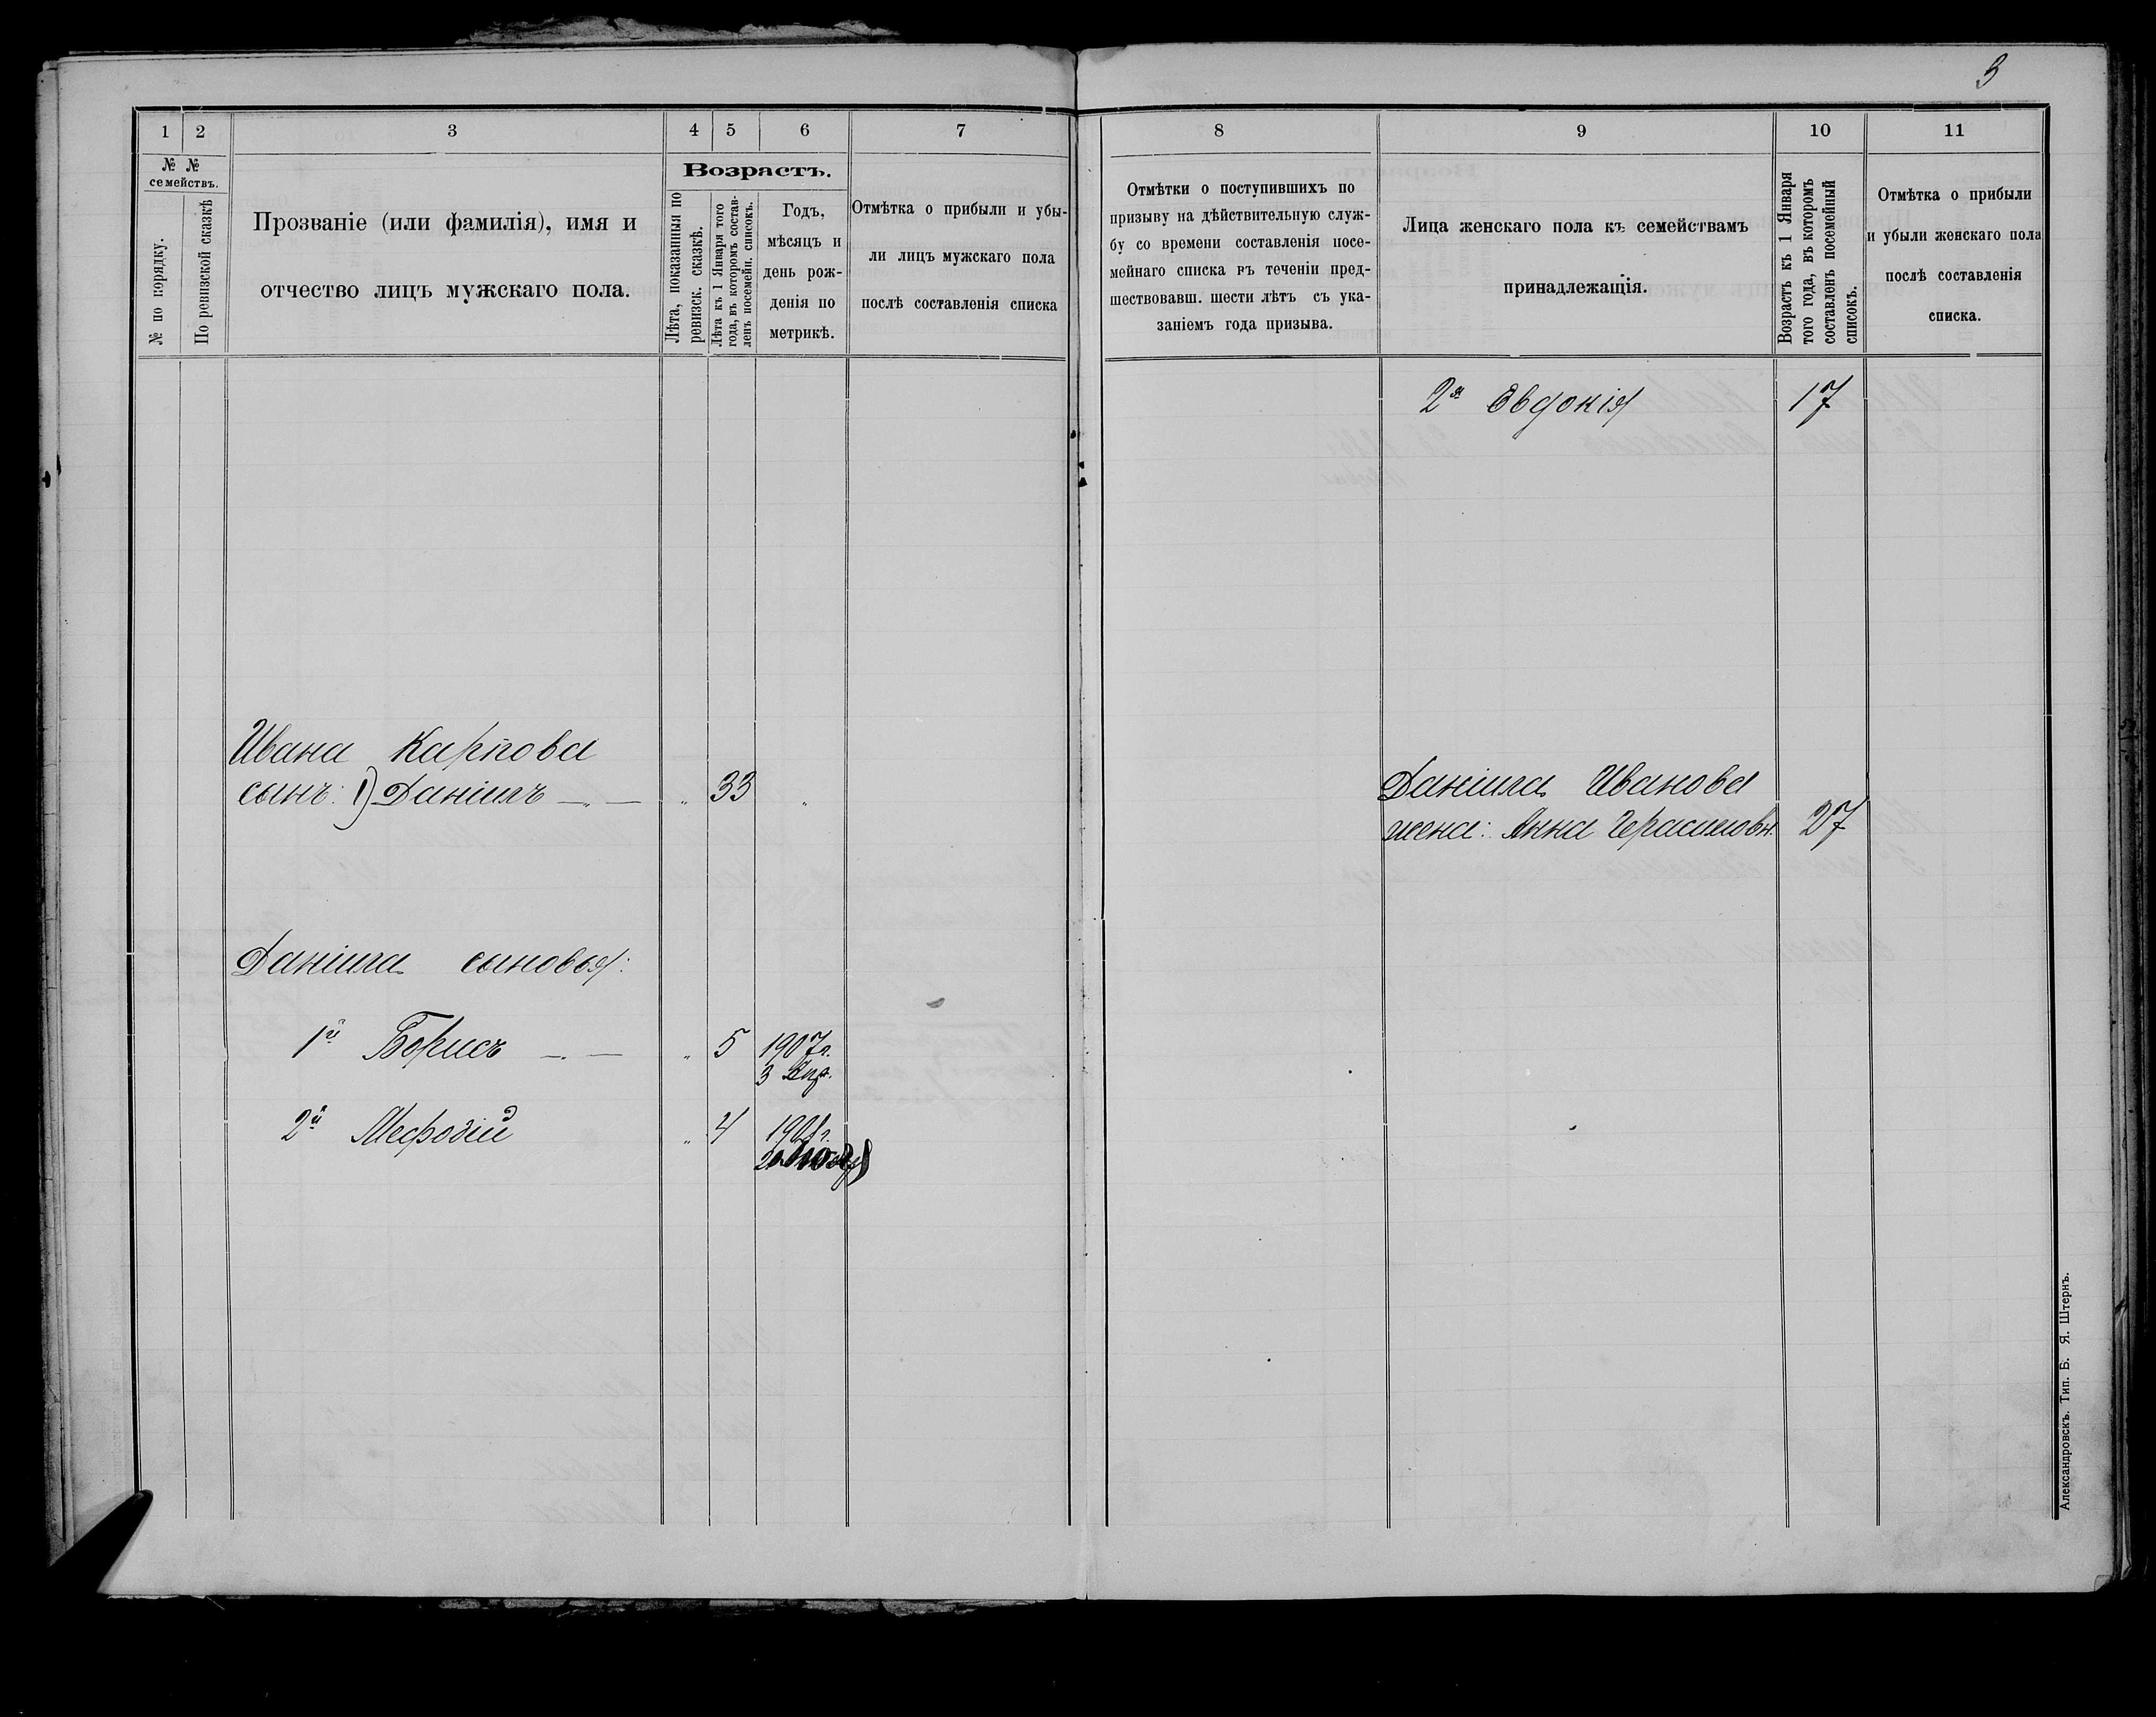 3
1 2 3 4 5 6 7
№ №
семействъ.
№ по порядку.
По ревизской сказкѣ
Прозваніе (или фамилія), имя и
отчество лицъ мужскаго пола.
Возрастъ.
Лѣта, показанныя по
ревизск. сказкѣ.
Лѣта къ 1 Января того
года, въ которомъ состав-
ленъ посемейн. списокъ.
Годъ,
мѣсяцъ и
день рож-
денія по
метрикѣ.
Отмѣтка о прибыли и убы-
ли лицъ мужскаго пола
послѣ составленія списка
Ивана Карпова
сынъ: 1) Даніилъ 33
Даніила сыновья:
1й Борисъ 5 1907г.
3
2й Мефодій 4
8 9 10 11
Отмѣтки о поступившихъ по
призыву на дѣйствительную служ-
бу со времени составленія посе-
мейнаго списка въ теченіи пред-
шествовавш. шести лѣтъ съ ука-
заніемъ года призыва.
Лица женскаго пола къ семействамъ
принадлежащія.
Возрастъ къ 1 Января
того года, въ которомъ
составленъ посемейный
списокъ.
Отмѣтка о прибыли
и убыли женскаго пола
послѣ составленія
списка.
2я Евдокія 17
Даніила Иванова
жена: Анна Герасимовн. 27
Александровскъ. Тип. Б. Я. Штернъ.